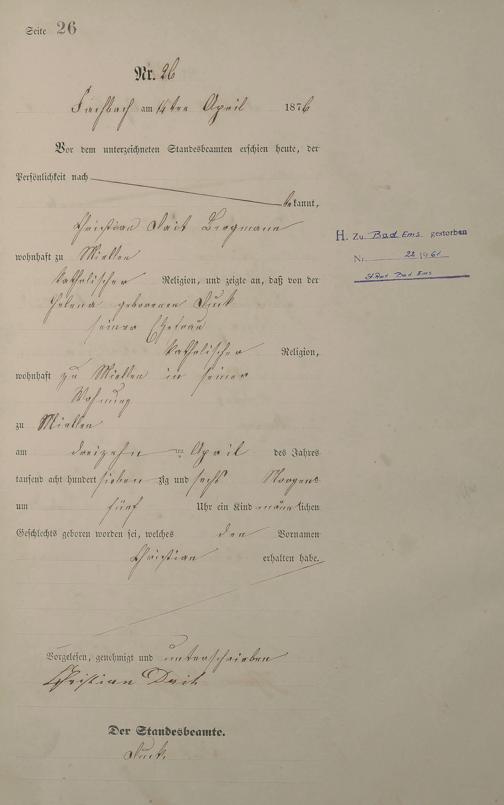 Seite 26
Nr. 26
Fachbach am 14ten April 1876
Vor dem unterzeichneten Standesbeamten erschien heute, der
Persönlichkeit nach
bekannt,
Christian Bergmann
wohnhaft zu Miellen
katholischer Religion, und zeigte an, daß von der
Helena geborenen
seiner Ehefrau
katholischer Religion,
wohnhaft zu Miellen in seiner
Wohnung
zu Miellen
am dreizehn ten April des Jahres
tausend acht hundert sieben zig und sechs Morgens
um fünf Uhr ein Kind männlichen
Geschlechts geboren worden sei, welches den Vornamen
Christian erhalten habe.
Vorgelesen, genehmigt und unterschrieben
Christian
Der Standesbeamte.
H. Zu Bad Ems gestorben
Nr. 22/1961
StBad Bad Ems